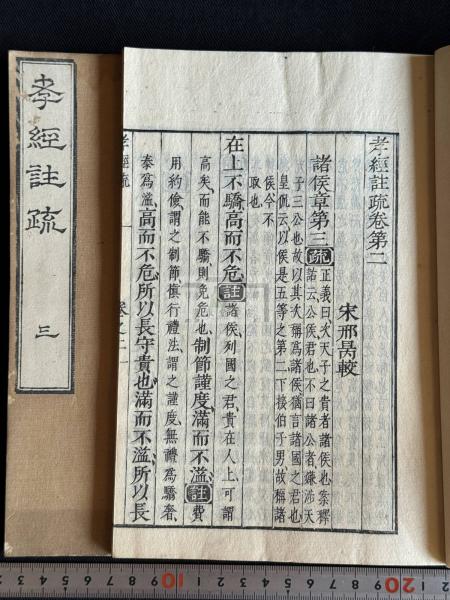 孝經註疏卷第二
宋邢昺較
諸侯章第三疏正義曰次天子之貴者諸侯也案釋
詁云公侯君也不曰諸公者嫌涉天
子三公也故以其次稱爲諸侯猶言諸國之君也
皇侃云以侯是五等之第二下接伯子男故稱諸
侯今不
取也
在上不驕高而不危註諸侯列國之君貴在人上可謂
高矣而能不驕則免危也制節謹度滿而不溢註費
用約儉謂之制節慎行禮法謂之謹度無禮爲驕奢
泰爲溢高而不危所以長守貴也滿而不溢所以長
孝經疏 卷之二 一
孝經註疏 三
10 20